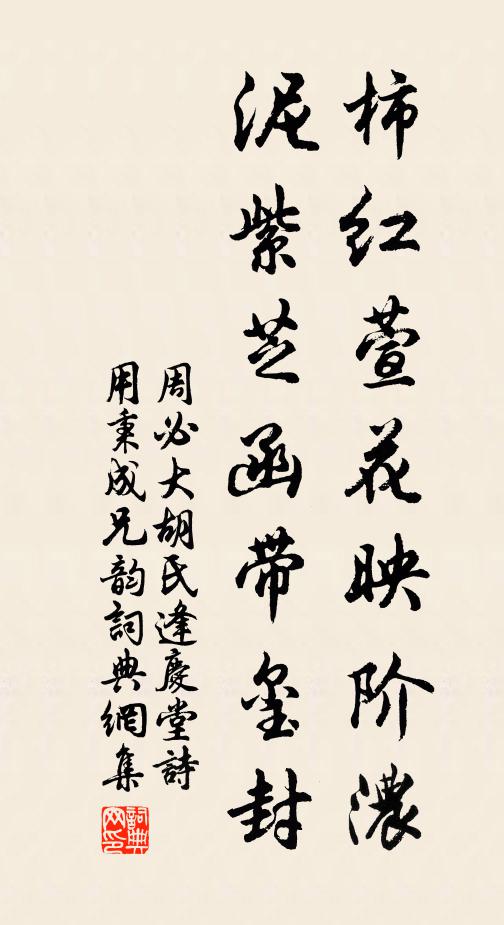 柿红萱花映阶濃
泥紫芝函带玺封
周必大胡氏逢慶堂詩
用秉成兄韵詞典網集
詞典网印